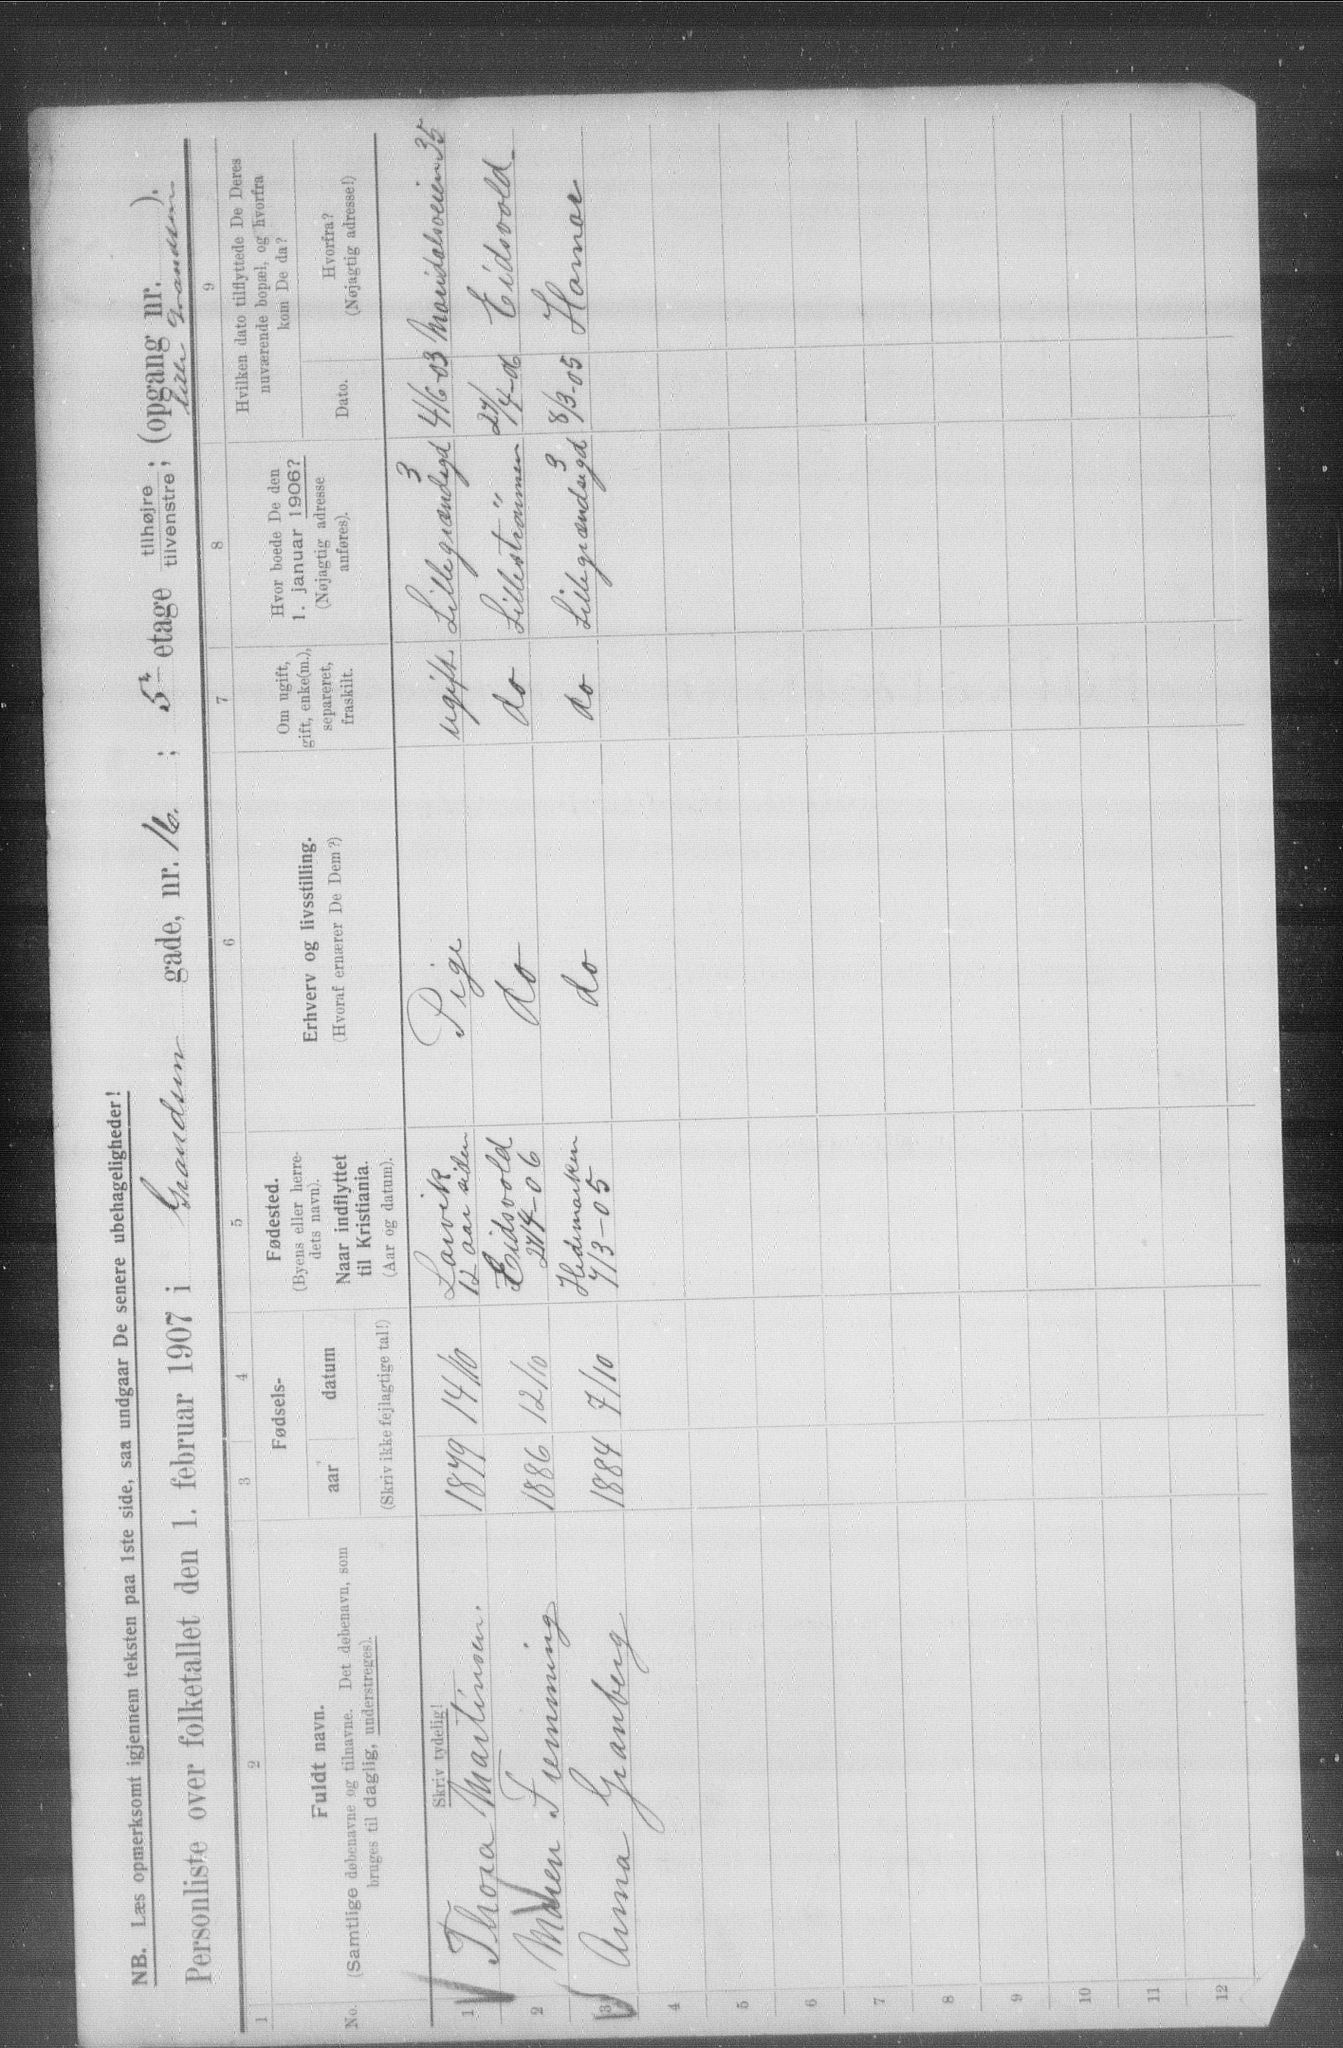 NB. Læs opmerksomt igjennem teksten paa 1ste side, saa undgaar De senere ubehageligheder!
Personliste over folketallet den 1. februar 1907 i Grandsen gade, nr. 16. ; 5 etage tilhøjre tilvenstre; (opgang nr. ).
1 2 3 4 5 6 7 8 9
No.
Fuldt navn.
(Samtlige døbenavne og tilnavne. Det døbenavn, som
bruges til daglig, understreges).
Skriv tydelig!
Fødsels-
aar datum
(Skriv ikke fejlagtige tal!)
Fødested.
(Byens eller herre-
dets navn).
Naar indflyttet
til Kristiania.
(Aar og datum).
Erhverv og livsstilling.
(Hvoraf ernærer De Dem?)
Om ugift,
gift, enke(m.),
separeret,
fraskilt.
Hvor boede De den
1. januar 1906?
(Nøjagtig adresse
anføres).
Hvilken dato tilflyttede De Deres
nuværende bopæl, og hvorfra
kom De da?
Dato.
Hvorfra?
(Nøjagtig adresse!)
1 Thora Martinsen. 1879 14/10 Larvik 12 aar siden Pige ugift. Lillegrændsgd 3 4/6-03 Maridalsveien 35
2 Maren Fremming 1886 12/10 Eidsvold 27/4-06 do do Lillestrømmen 27/4-06 Eidsvold.
3 Anna Granberg 1884 7/10 Hedemarken 7/3-05 do do Lillegrændsgd 3 8/3-05 Hamar
4
5
6
7
8
9
10
11
12